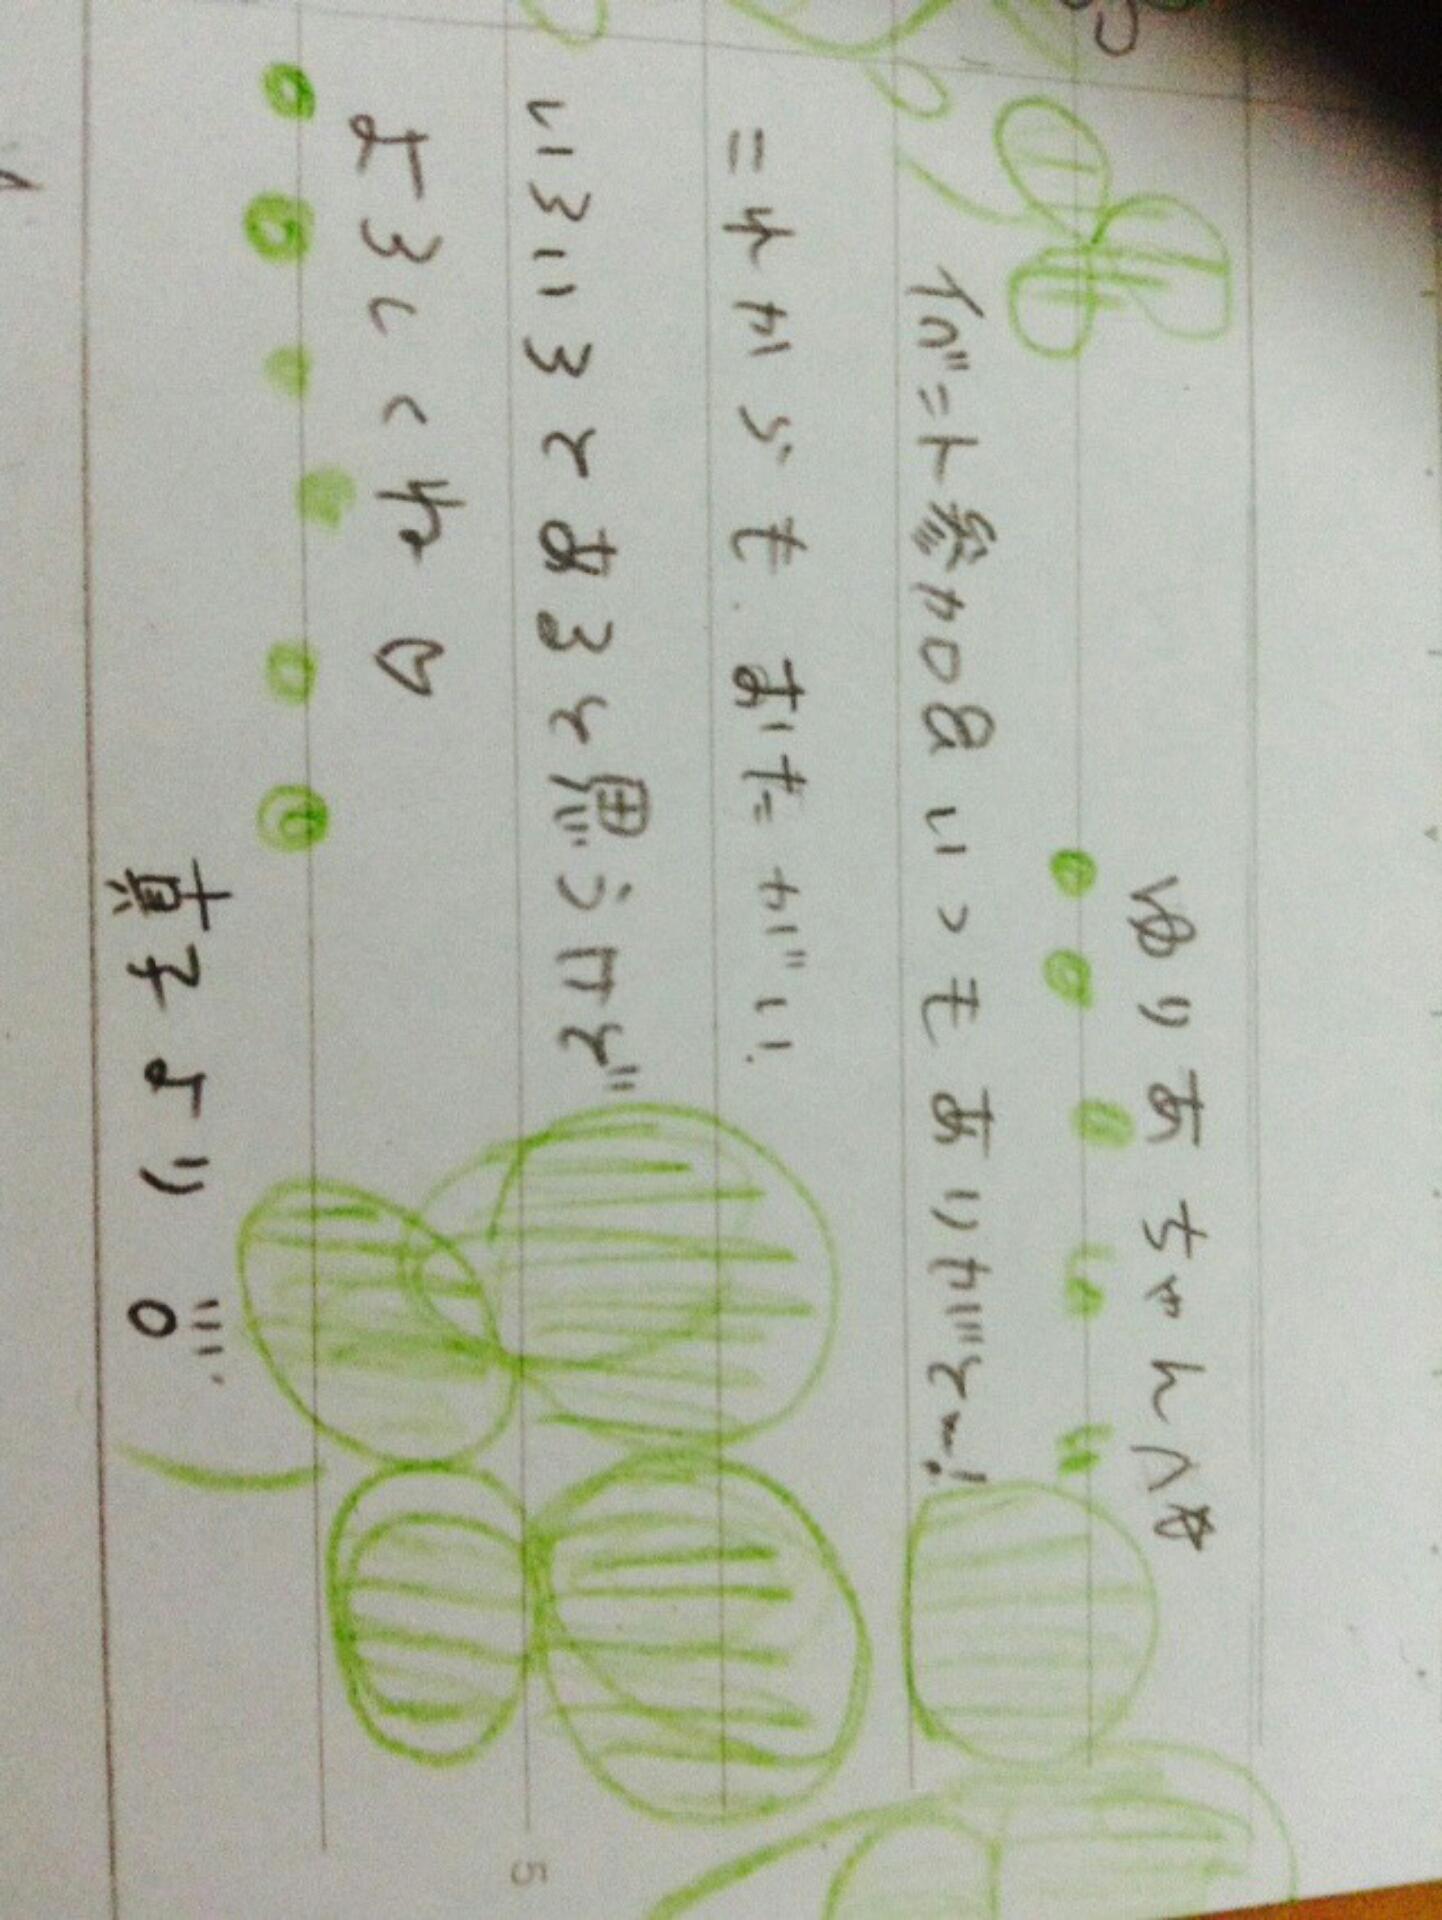 ゆりあちゃんへ☆
イベント参加&いつもありがとー!
これからも、おたがい
いろいろとあると思うけど
よろしくね♡
より
5